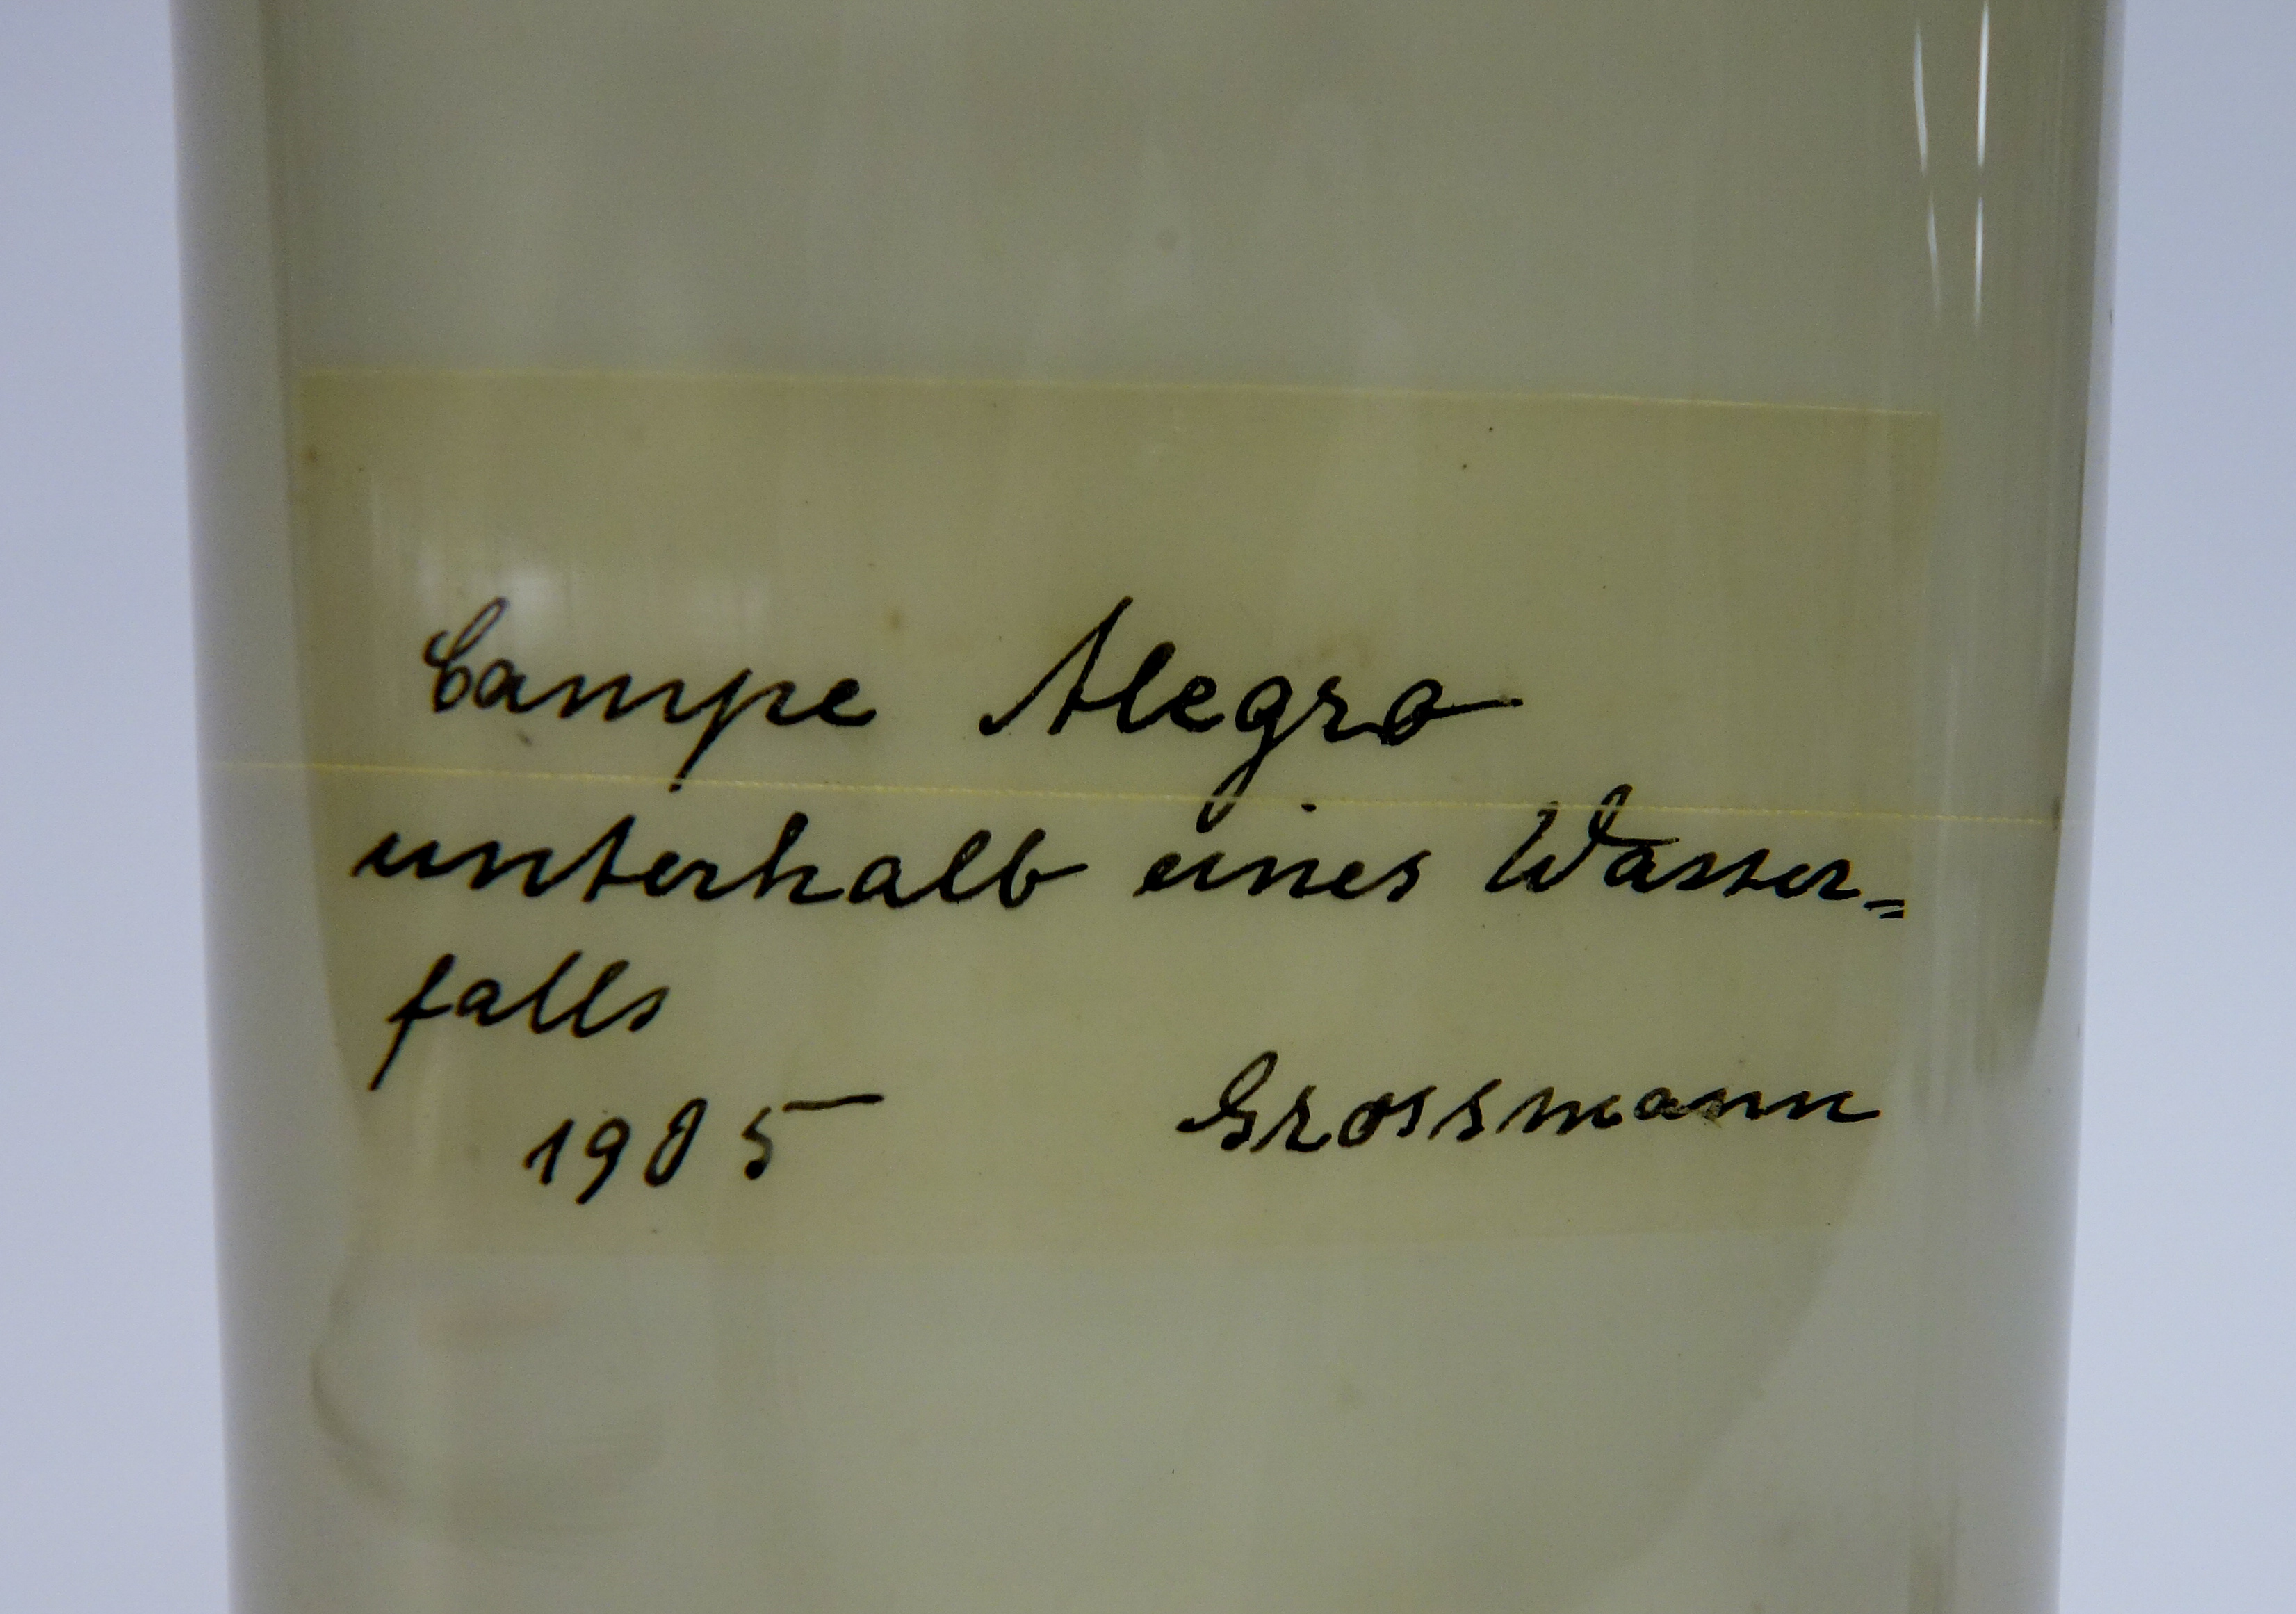 Campe Alegro
unterhalb eines Wasser=
falls
1905 Grossmann